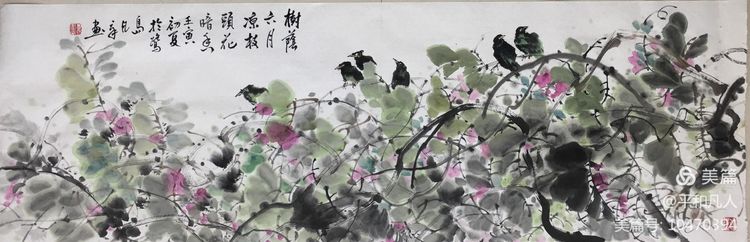 樹蔭
六月
凉枝
頭花
暗香
壬寅
初夏
於鷺
島
画
美篇
@平和凡人
美篇号: